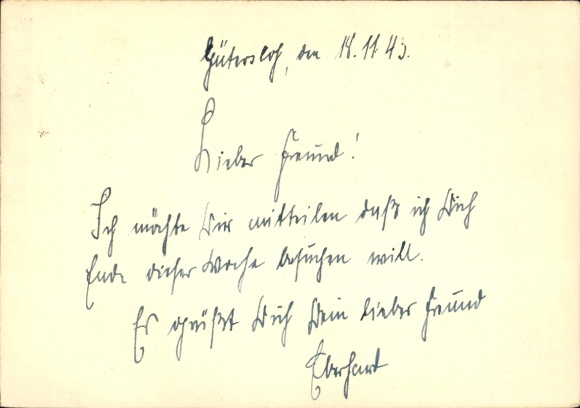 Gütersloh, den 18.11.43.
Lieber Freund!
Ich möchte Dir mitteilen daß ich Dich
Ende dieser Woche besuchen will.
Es grüßt Dich Dein lieber Freund
Eberhard